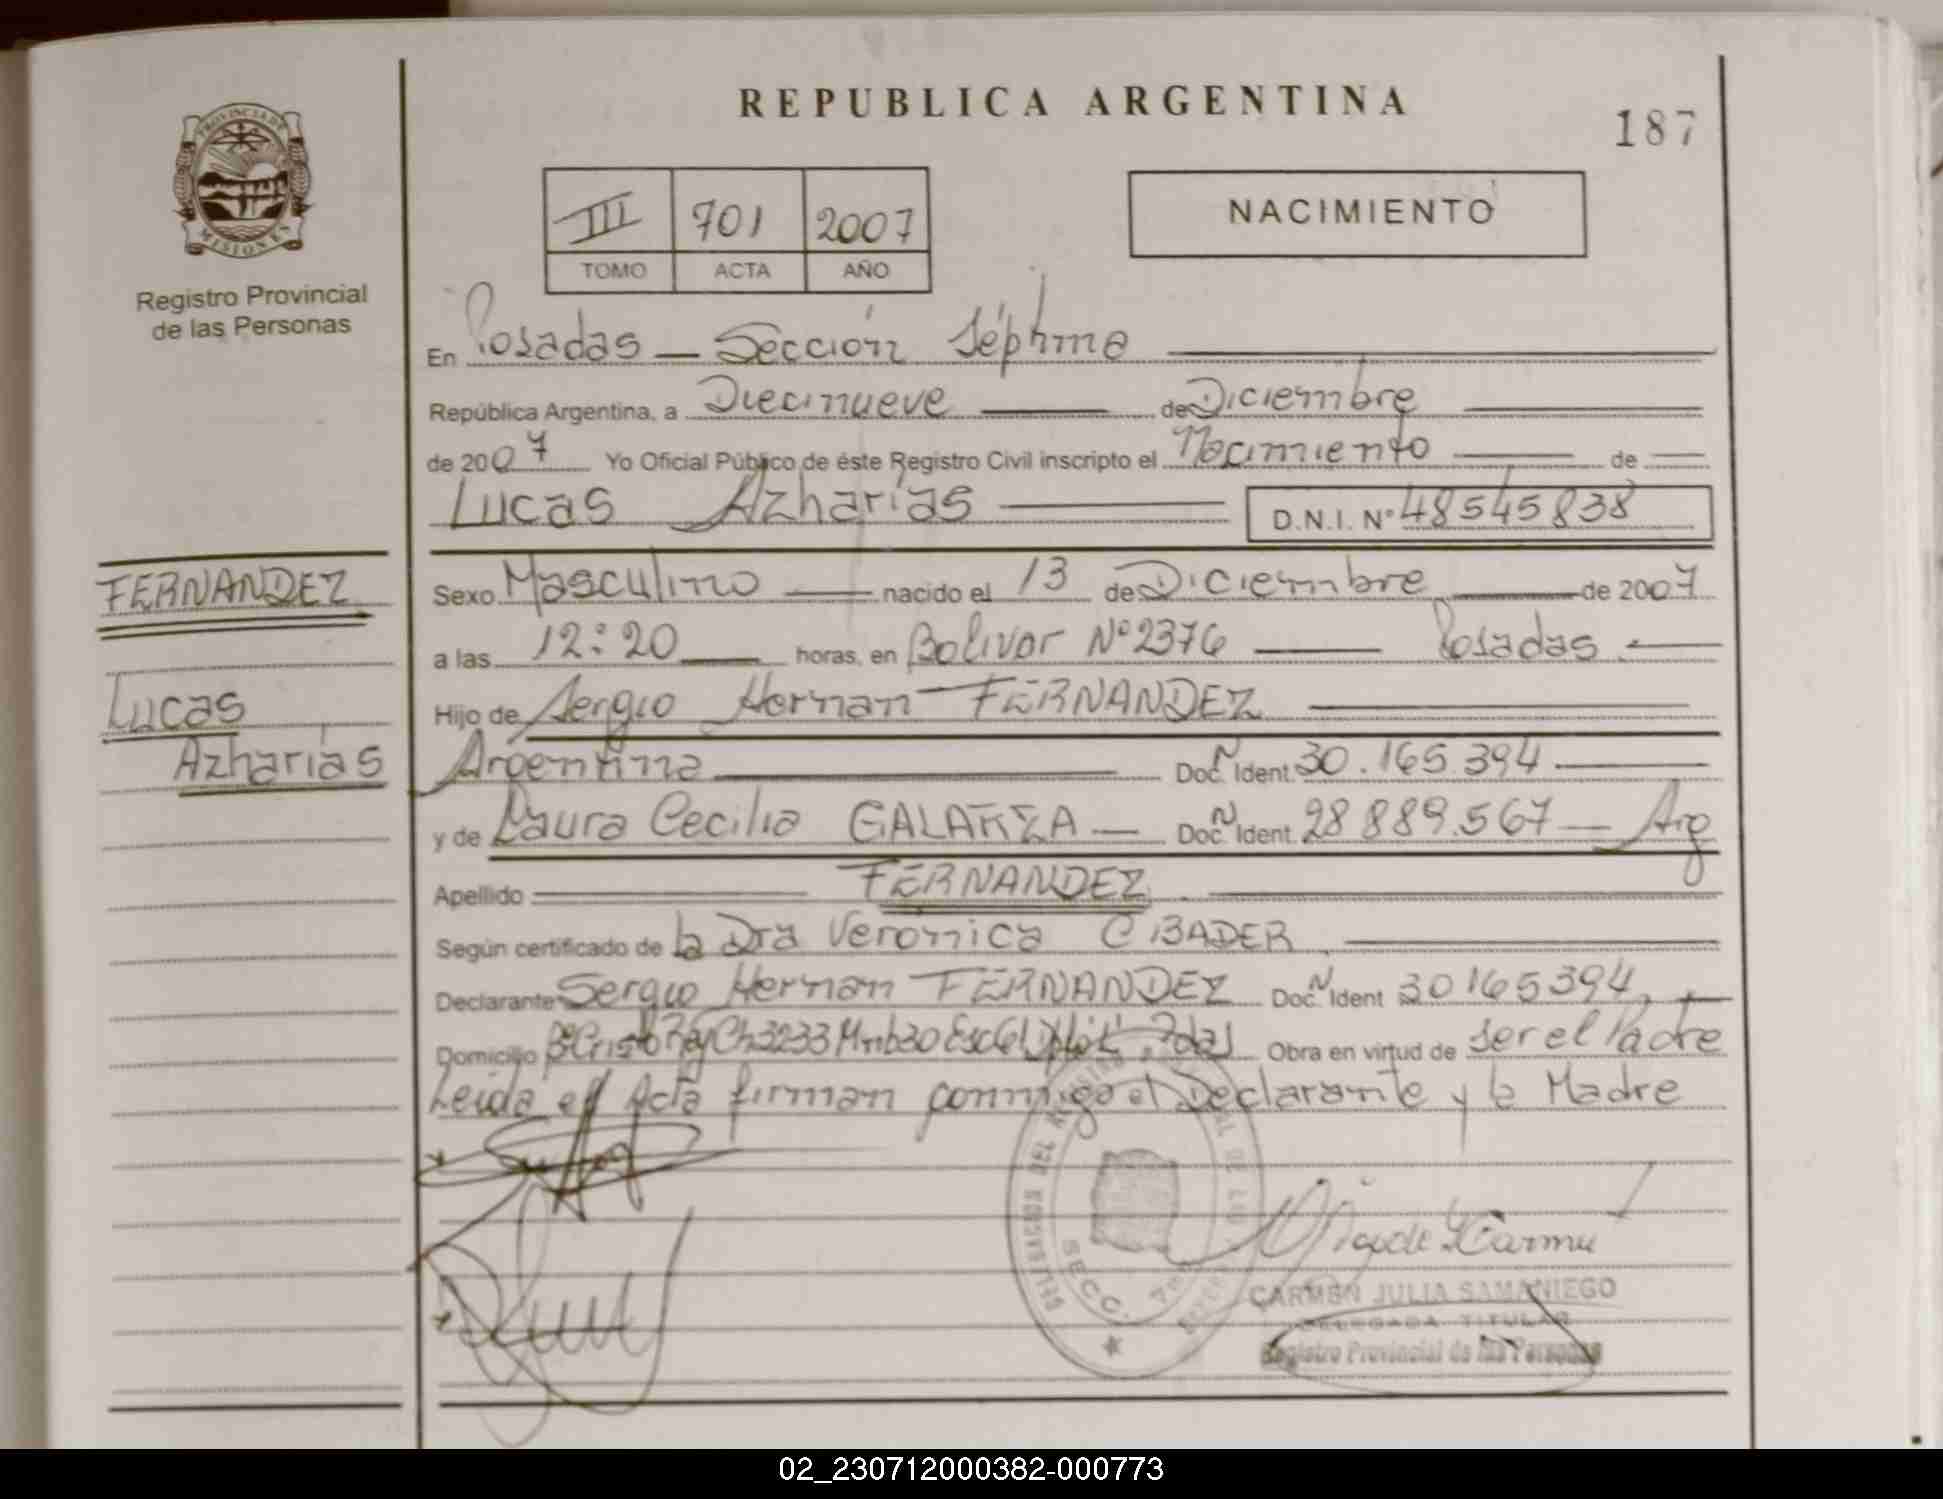 REPUBLICA ARGENTINA
187
PROVINCIA DE
MISIONES
Registro Provincial
de las Personas
III 701 2007
TOMO ACTA AÑO
NACIMIENTO
En Posadas — Sección Séptima
República Argentina, a Diecinueve de Diciembre
de 2007 Yo Oficial Público de éste Registro Civil inscripto el Nacimiento de
Lucas Azharías D.N.I. N° 48545838
FERNANDEZ
Lucas
Azharías
Sexo Masculino nacido el 13 de Diciembre de 2007
a las 12:20 horas, en Bolivar N° 2376 Posadas
Hijo de Sergio Hernan FERNANDEZ
Argentina Doc. N Ident. 30.165.394
y de Laura Cecilia GALARZA Doc. N Ident. 28889.567 Arg
Apellido FERNANDEZ
Según certificado de la Dra Veronica CBADER
Declarante Sergio Hernan FERNANDEZ Doc. N Ident 30165394,
Domicilio Ch3233 Mnb30 Pdas Obra en virtud de ser el Padre
Leida el Acta firman conmigo el Declarante y la Madre
DELEGACION DEL
SECC. 7ma
CARMEN JULIA SAMANIEGO
DELEGADA TITULAR
Registro Provincial de las Personas
02_230712000382-000773